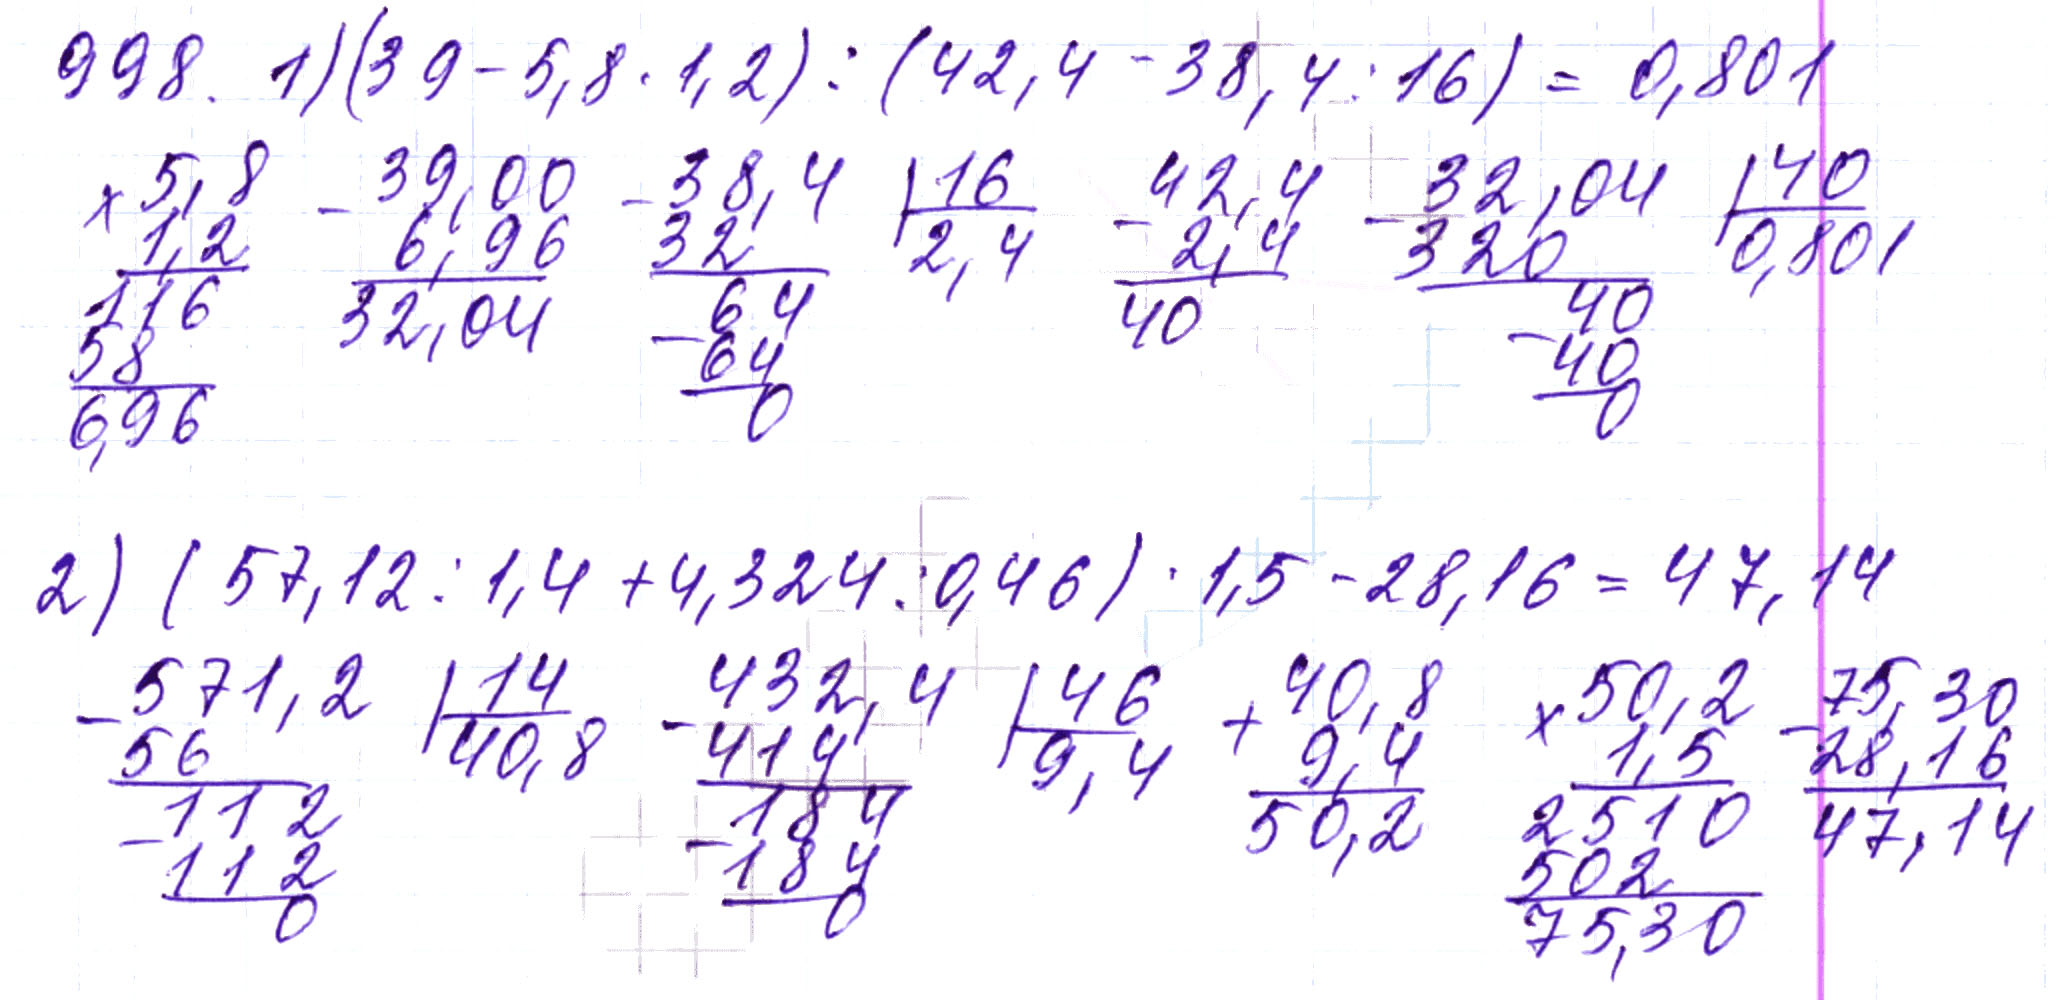 998. 1) (39 - 5,8 · 1,2) : (42,4 - 38,4 : 16) = 0,801
× 5,8 - 39,00 - 38,4 | 16 - 42,4 - 32,04 | 40
1,2 6,96 32 2,4 2,4 320 0,801
116 32,04 64 40 40
58 - 64 - 40
6,96 0 0
2) (57,12 : 1,4 + 4,324 : 0,46) · 1,5 - 28,16 = 47,14
- 571,2 | 14 - 432,4 | 46 + 40,8 × 50,2 - 75,30
56 40,8 414 9,4 9,4 1,5 28,16
112 184 50,2 2510 47,14
- 112 - 184 502
0 0 75,30